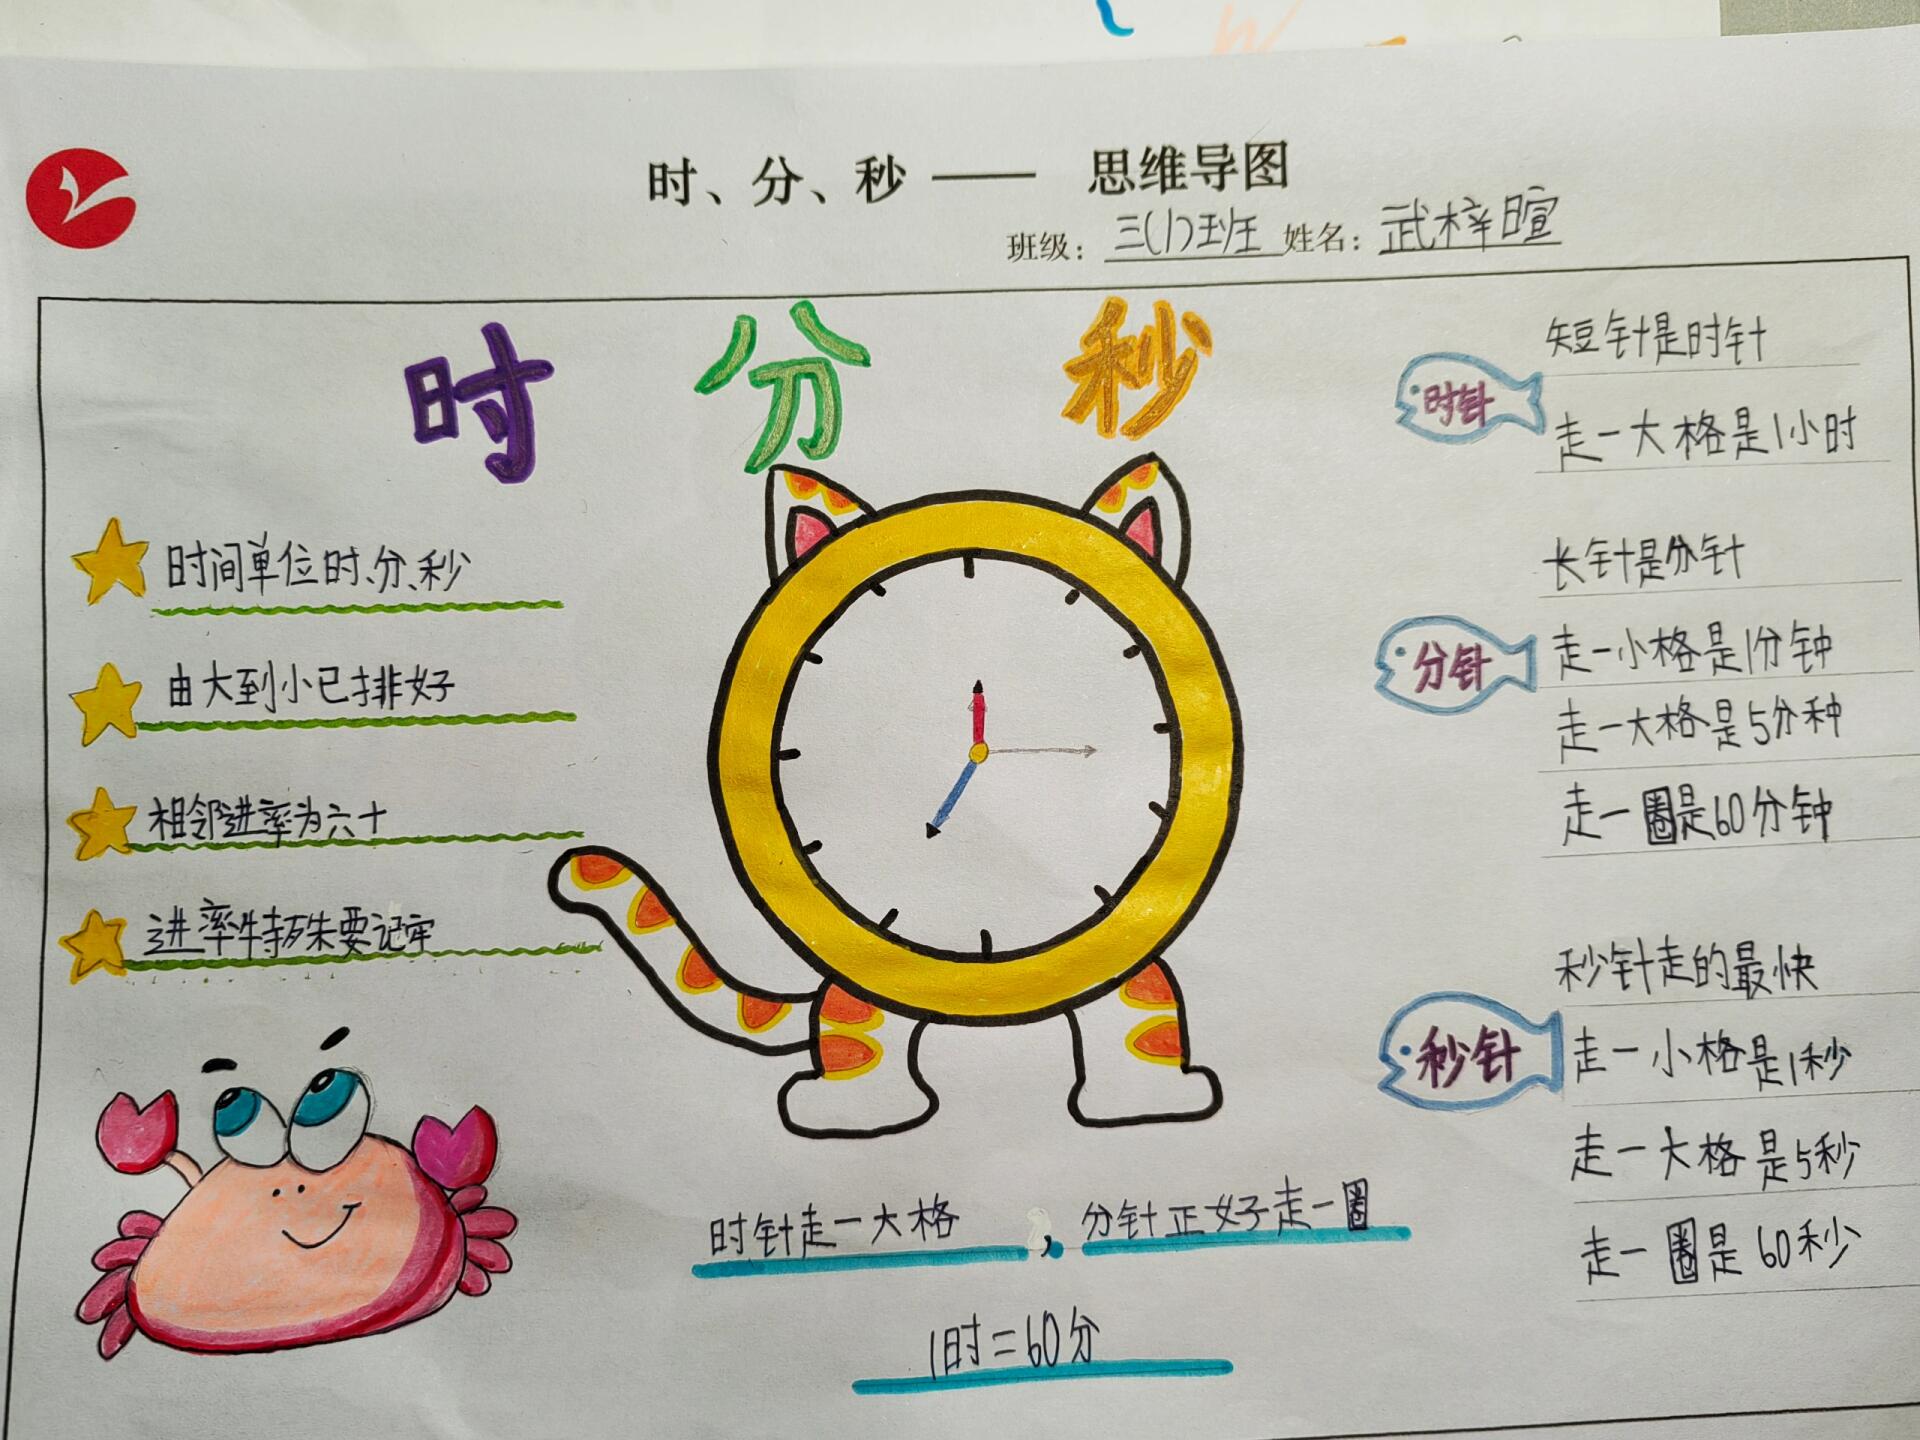 时、分、秒 —— 思维导图
班级：三(1)班 姓名：武梓暄
时 分 秒
时间单位时、分、秒
由大到小已排好
相邻进率为六十
进率特殊要记牢
时针
短针是时针
走一大格是1小时
分针
长针是分针
走一小格是1分钟
走一大格是5分种
走一圈是60分钟
秒针
秒针走的最快
走一小格是1秒
走一大格是5秒
走一圈是60秒
时针走一大格，分针正好走一圈
1时=60分